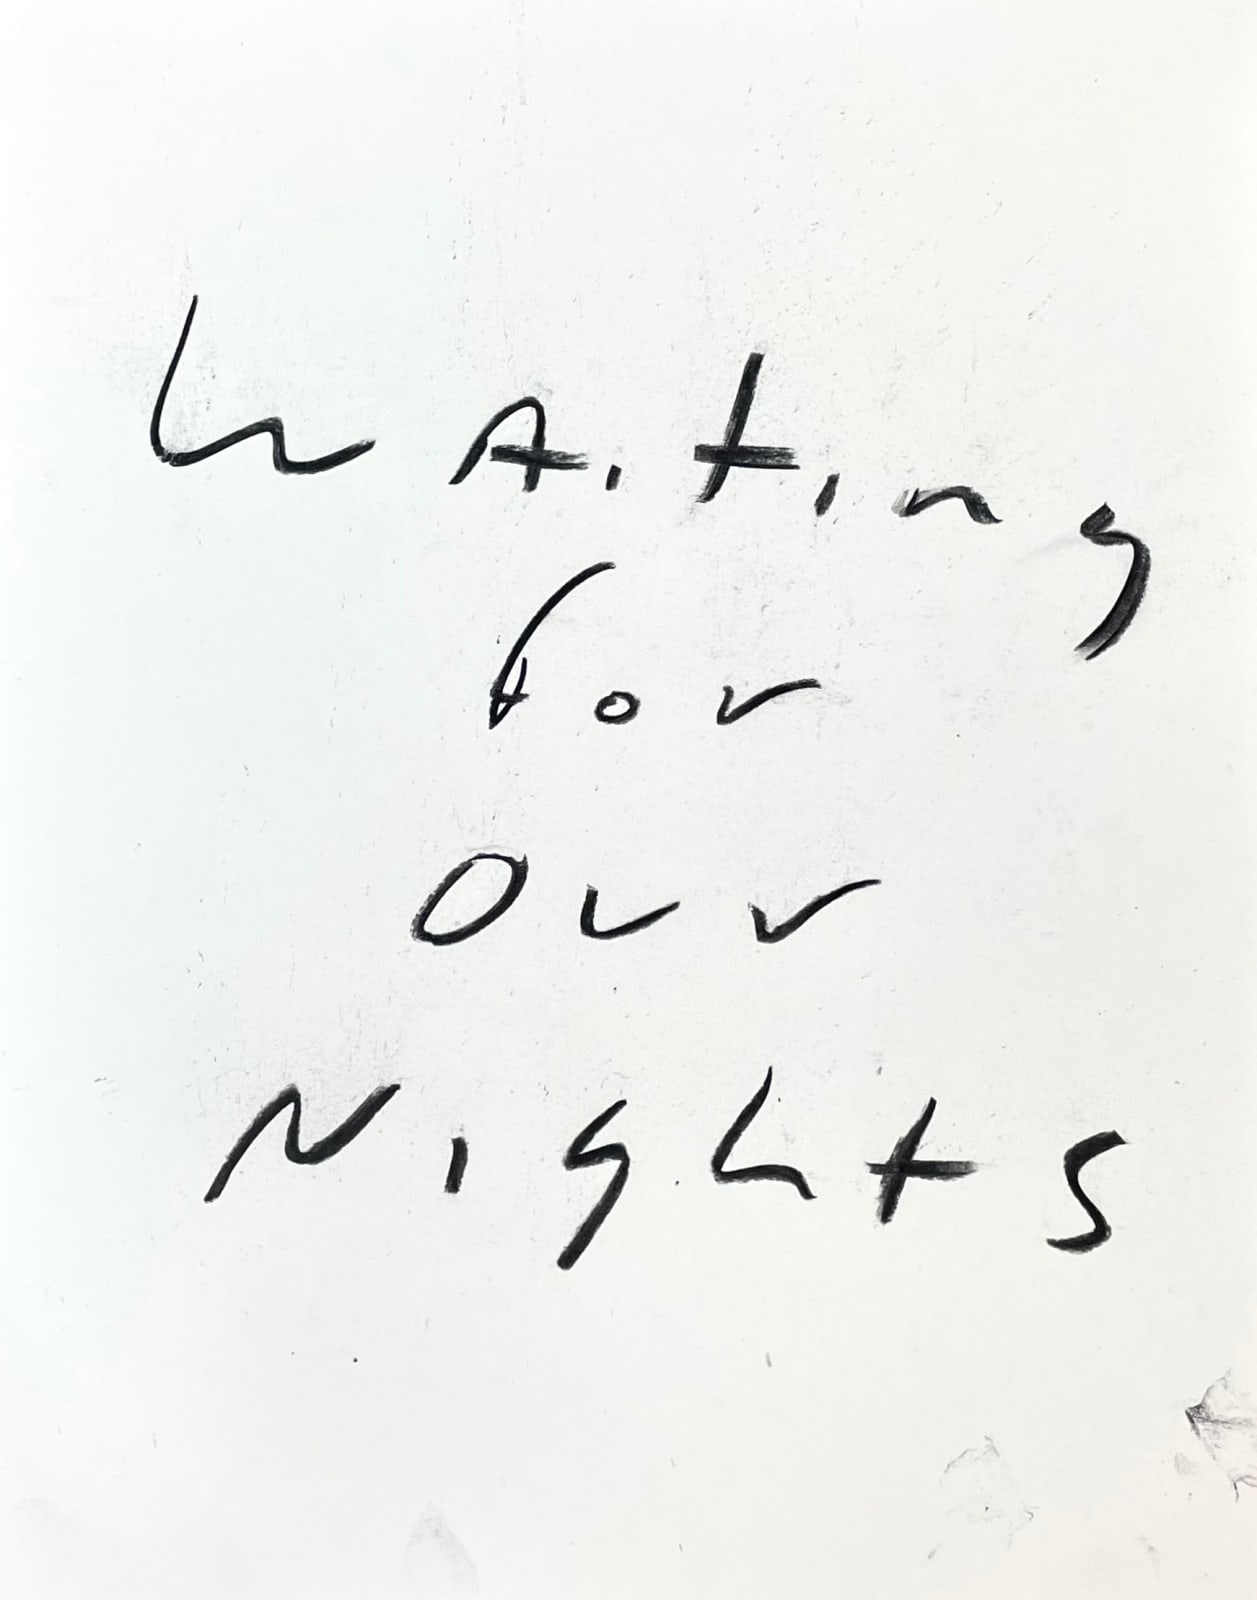 WAiting
for
Our
Nights